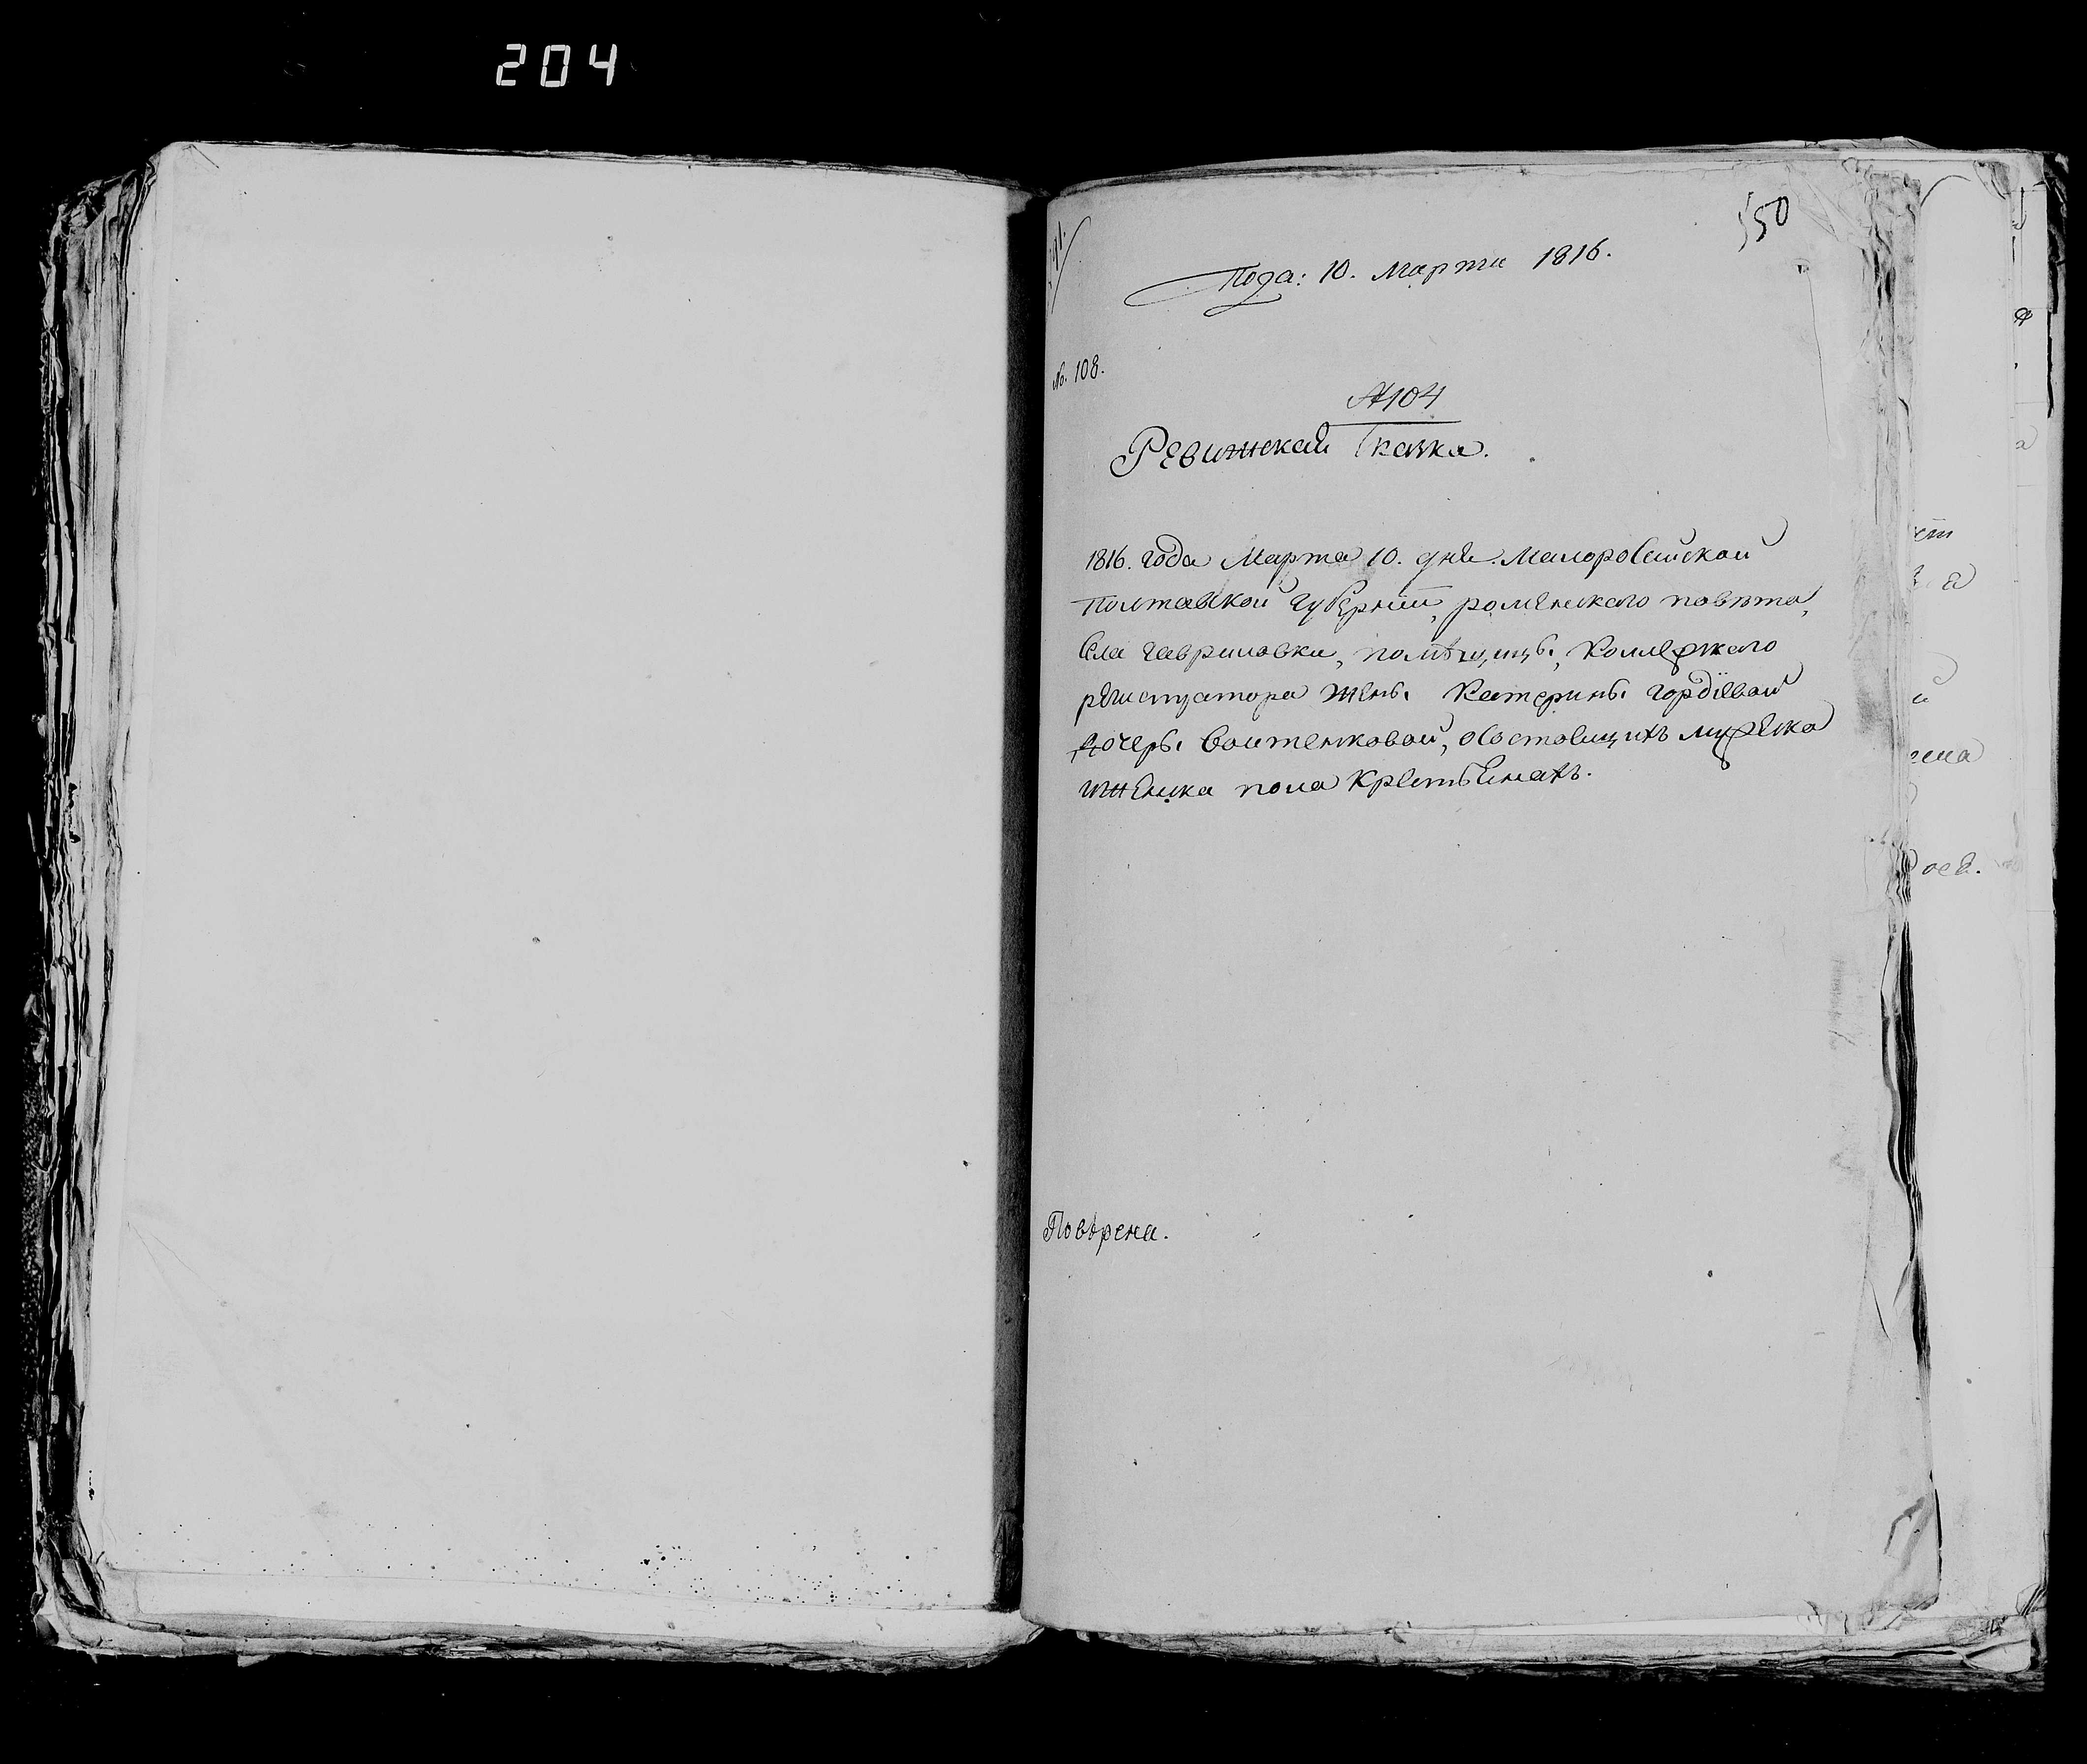 204
550
Пода: 10. Марта 1816.
№. 108.
№104
Ревижская Сказка.
1816. года Марта 10. дня. Малоросейской
Полтавской губерніи, роменского повѣта,
села гавриловки, помѣщицы, Коллежского
регистратора жены Катерины гордѣевой
дочеры Войтенковой, осостоящихъ мужеска
иженска пола крестьянахъ.
Повѣрена.